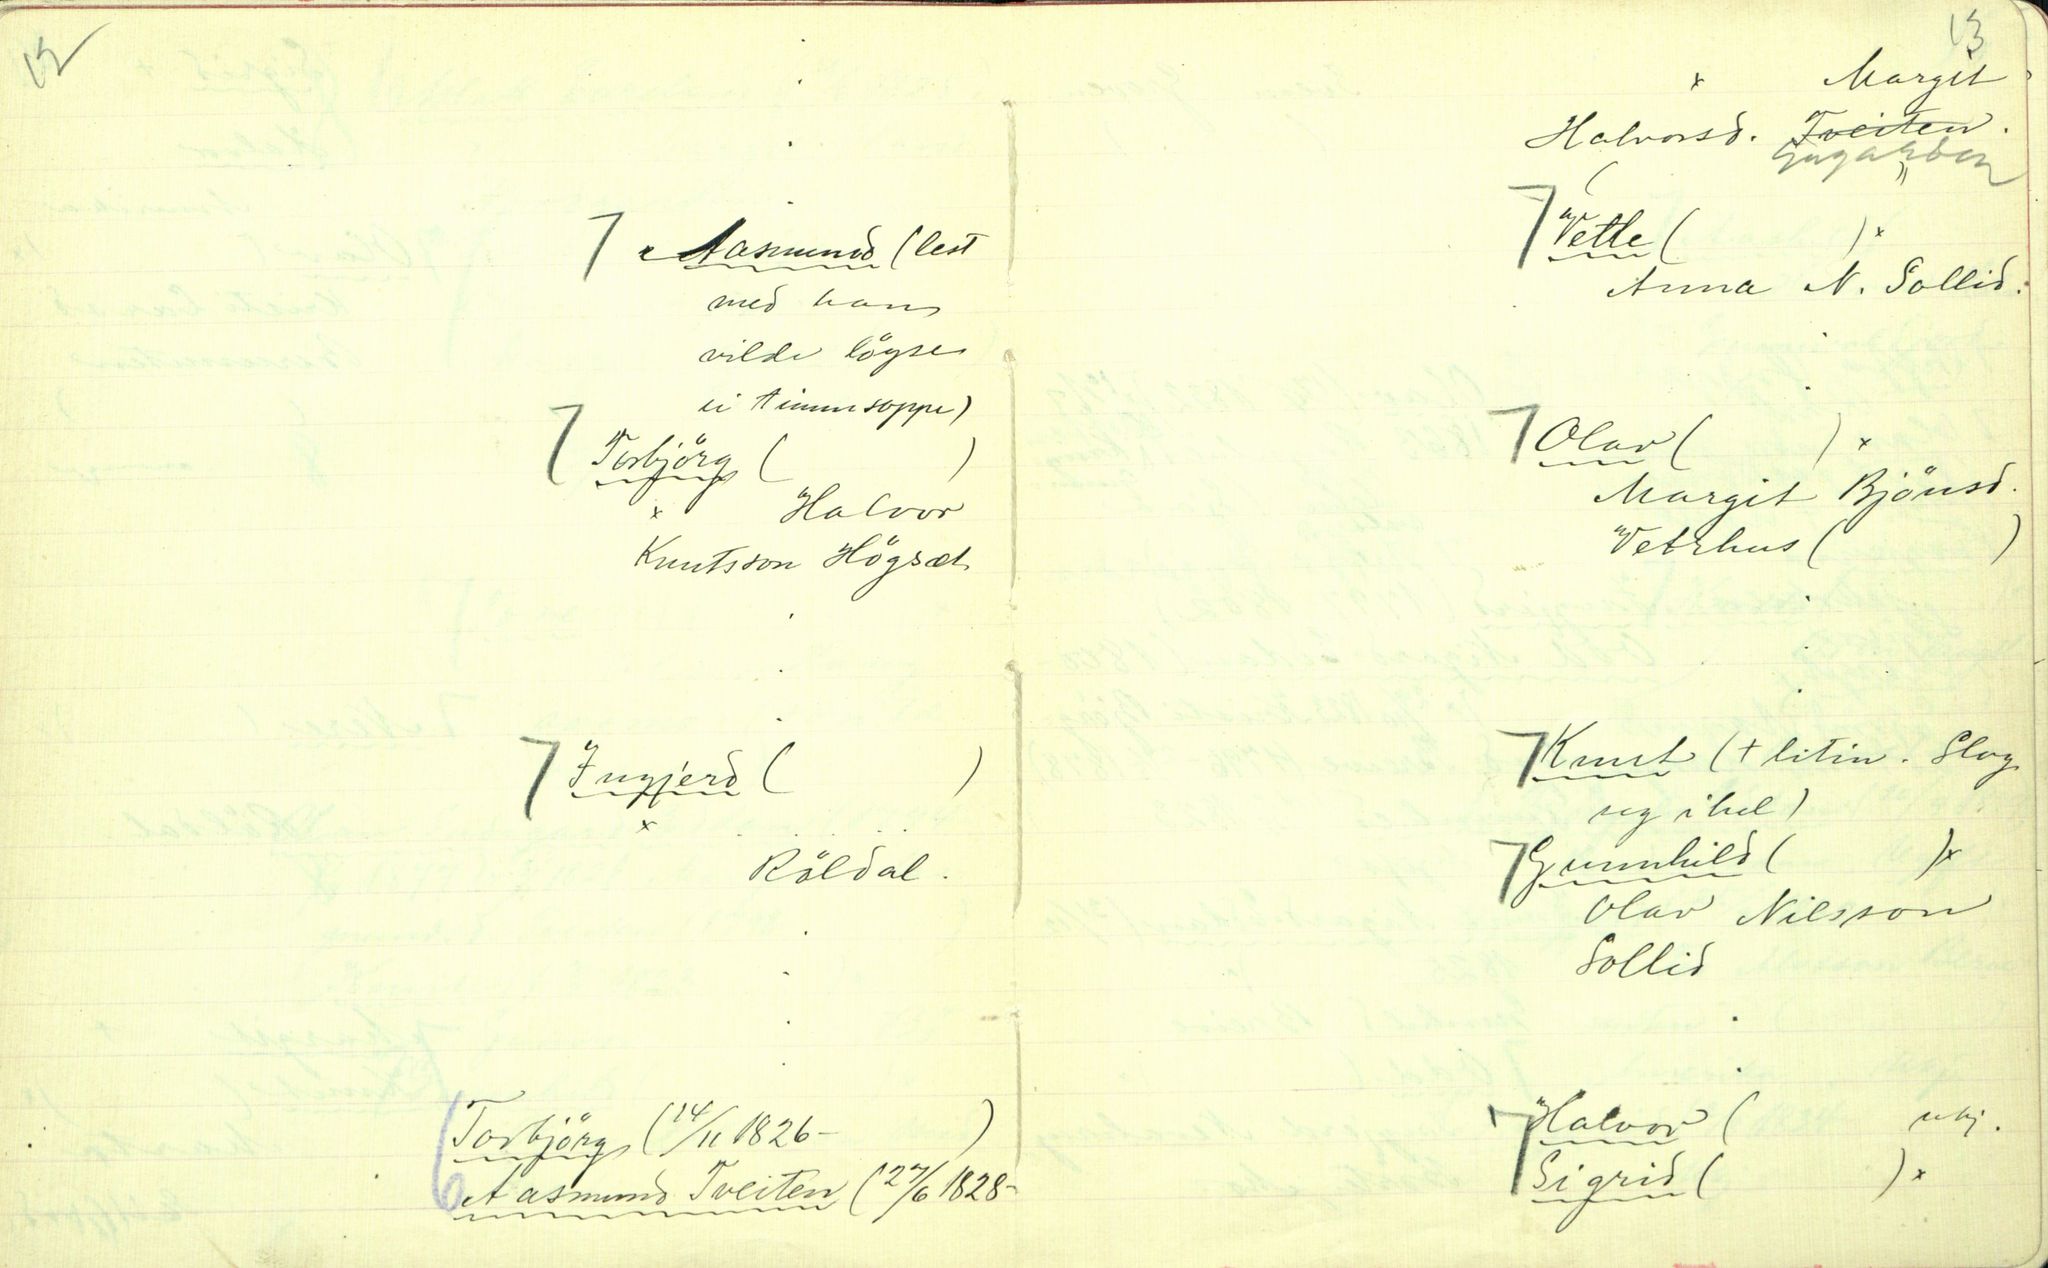 12
7 Aasmund (lest
med han
vilde löyse
ei timmsoppe)
7 Torbjörg ( )
x Halvor
Knutsson Högsæt
7 Ingjerd ( )
x . . . .
Röldal.
6 Torbjörg (14/11 1826- )
Aasmund Tveiten (27/6 1828-
13
x Margit
Halvorsd. Tveiten.
7 Vetle ( ) x
Anna N. Sollid.
7 Olav ( ) x
Margit Bjönsd.
Vetrhus ( )
7 Knut (+ litin. Slog
seg ihel)
7 Gunnhild ( ) x
Olav Nilsson
Sollid
7 Halvor ( ukj.
Sigrid ( ) x